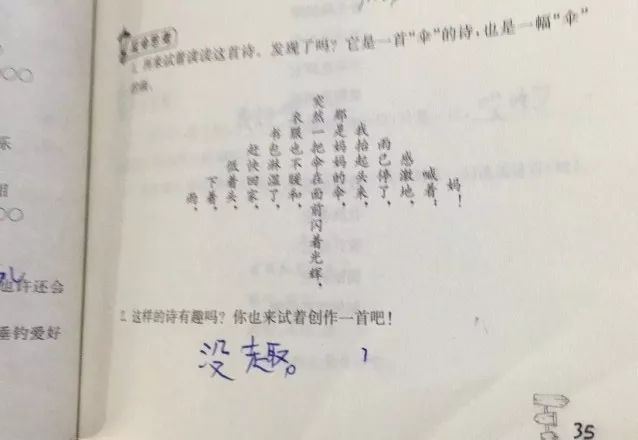 乐
也许还会
垂钓爱好
1. 再来试着读读这首诗。发现了吗？它是一首“伞”的诗，也是一幅“伞”
的画。
雨，
下着，
低着头，
赶快回家，
书包淋湿了，
衣服也不暖和，
突然一把伞在面前闪着光辉，
那是妈妈的伞，
我抬起头来，
雨已停了，
感激地，
喊着：
妈！
2. 这样的诗有趣吗？你也来试着创作一首吧！
没趣。
35